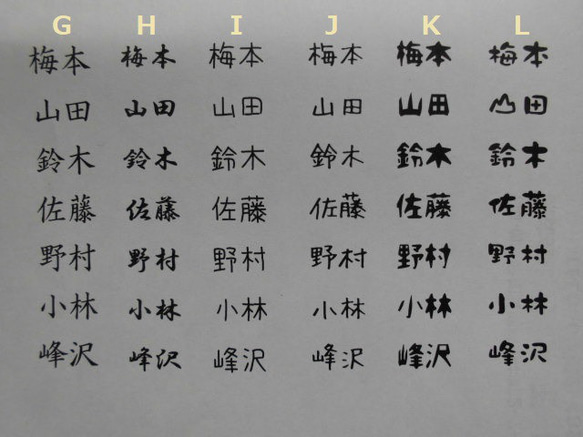 G H I J K L
梅本 梅本 梅本 梅本 梅本 梅本
山田 山田 山田 山田 山田 山田
鈴木 鈴木 鈴木 鈴木 鈴木 鈴木
佐藤 佐藤 佐藤 佐藤 佐藤 佐藤
野村 野村 野村 野村 野村 野村
小林 小林 小林 小林 小林 小林
峰沢 峰沢 峰沢 峰沢 峰沢 峰沢